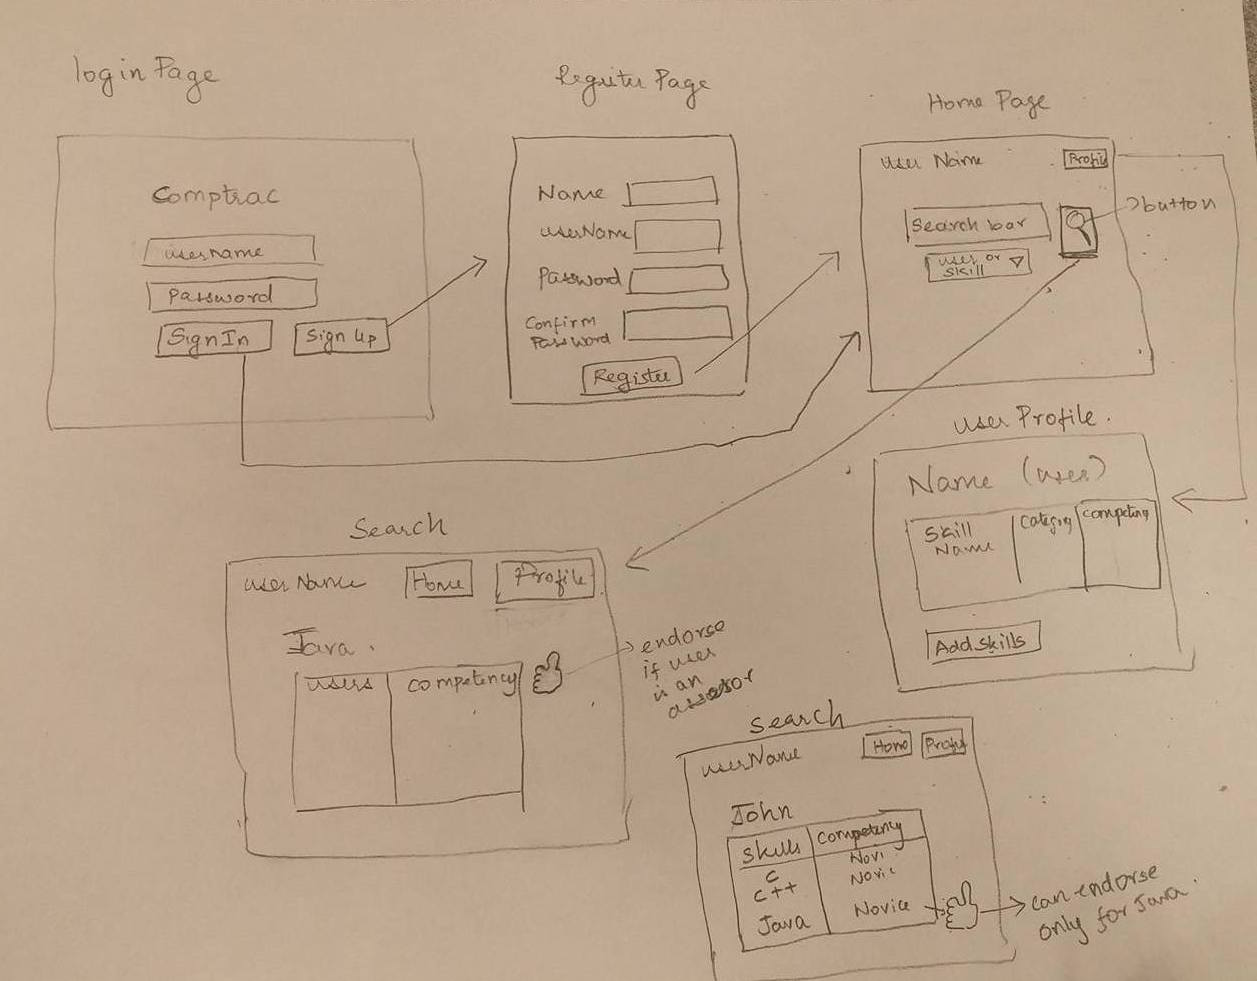 login Page
Comptrac
username
Password
SignIn
Sign Up
Register Page
Name
userName
Password
Confirm
Password
Register
Home Page
user Name
Profile
Search bar
button
user or
skill
user Profile.
Name (user)
Skill
Name
Category
Competency
Add skills
Search
user Name
Home
Profile
Java.
users
competency
endorse
if user
is an
assessor
Search
userName
Home
Profile
John
skills
competency
C
Novi
C++
Novic
Java
Novice
can endorse
only for Java.